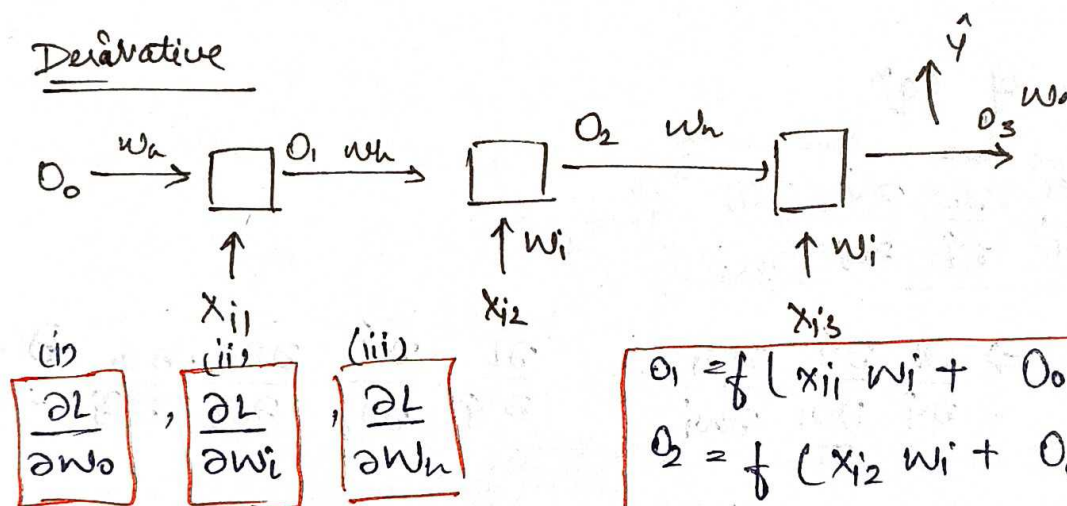 Derivative
ŷ
O₀ Wh O₁ Wh O₂ Wh O₃
Wi Wi
Xi1 Xi2 Xi3
(i) (ii) (iii)
∂L/∂W₀ , ∂L/∂Wi , ∂L/∂Wh
O₁ = f ( Xi1 Wi + O₀
O₂ = f ( Xi2 Wi +